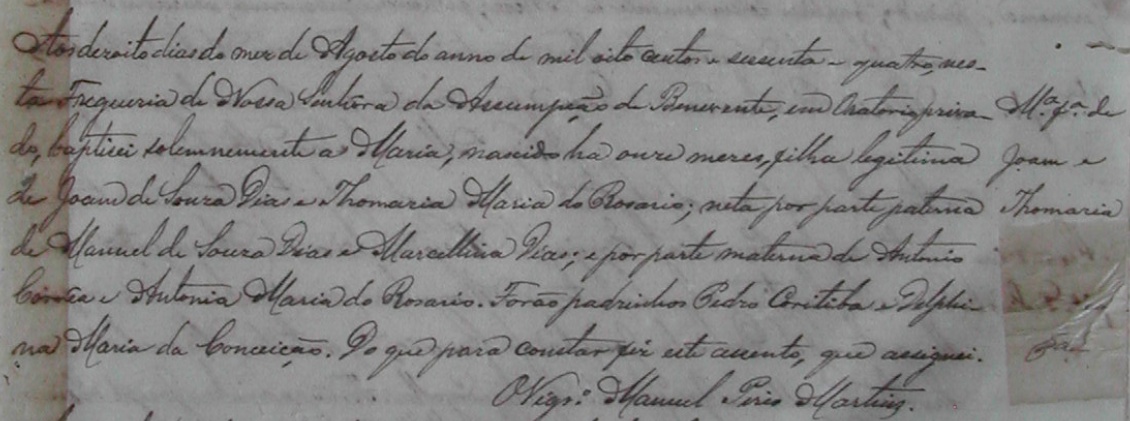 Aos dezoito dias do mez de Agosto do anno de mil oito centos e sessenta e quatro, nes-
ta Freguezia de Nossa Senhora da Assumpção de Benevente, em Oratorio priva-
do, baptisei solemnemente a Maria, nascido ha onze mezes, filha legitima
de Joam de Souza Dias e Thomazia Maria do Rosario; neta por parte paterna
de Manuel de Souza Dias e Marcellina Dias; e por parte materna de Antonio
Corrêa e Antonia Maria do Rosario. Forão padrinhos Pedro Coritiba e Delphi-
na Maria da Conceição. Do que para constar fiz este assento, que assignei.
O Vigr.º Manuel Pires Martins.
M.ª f.ª de
Joam e
Thomazia